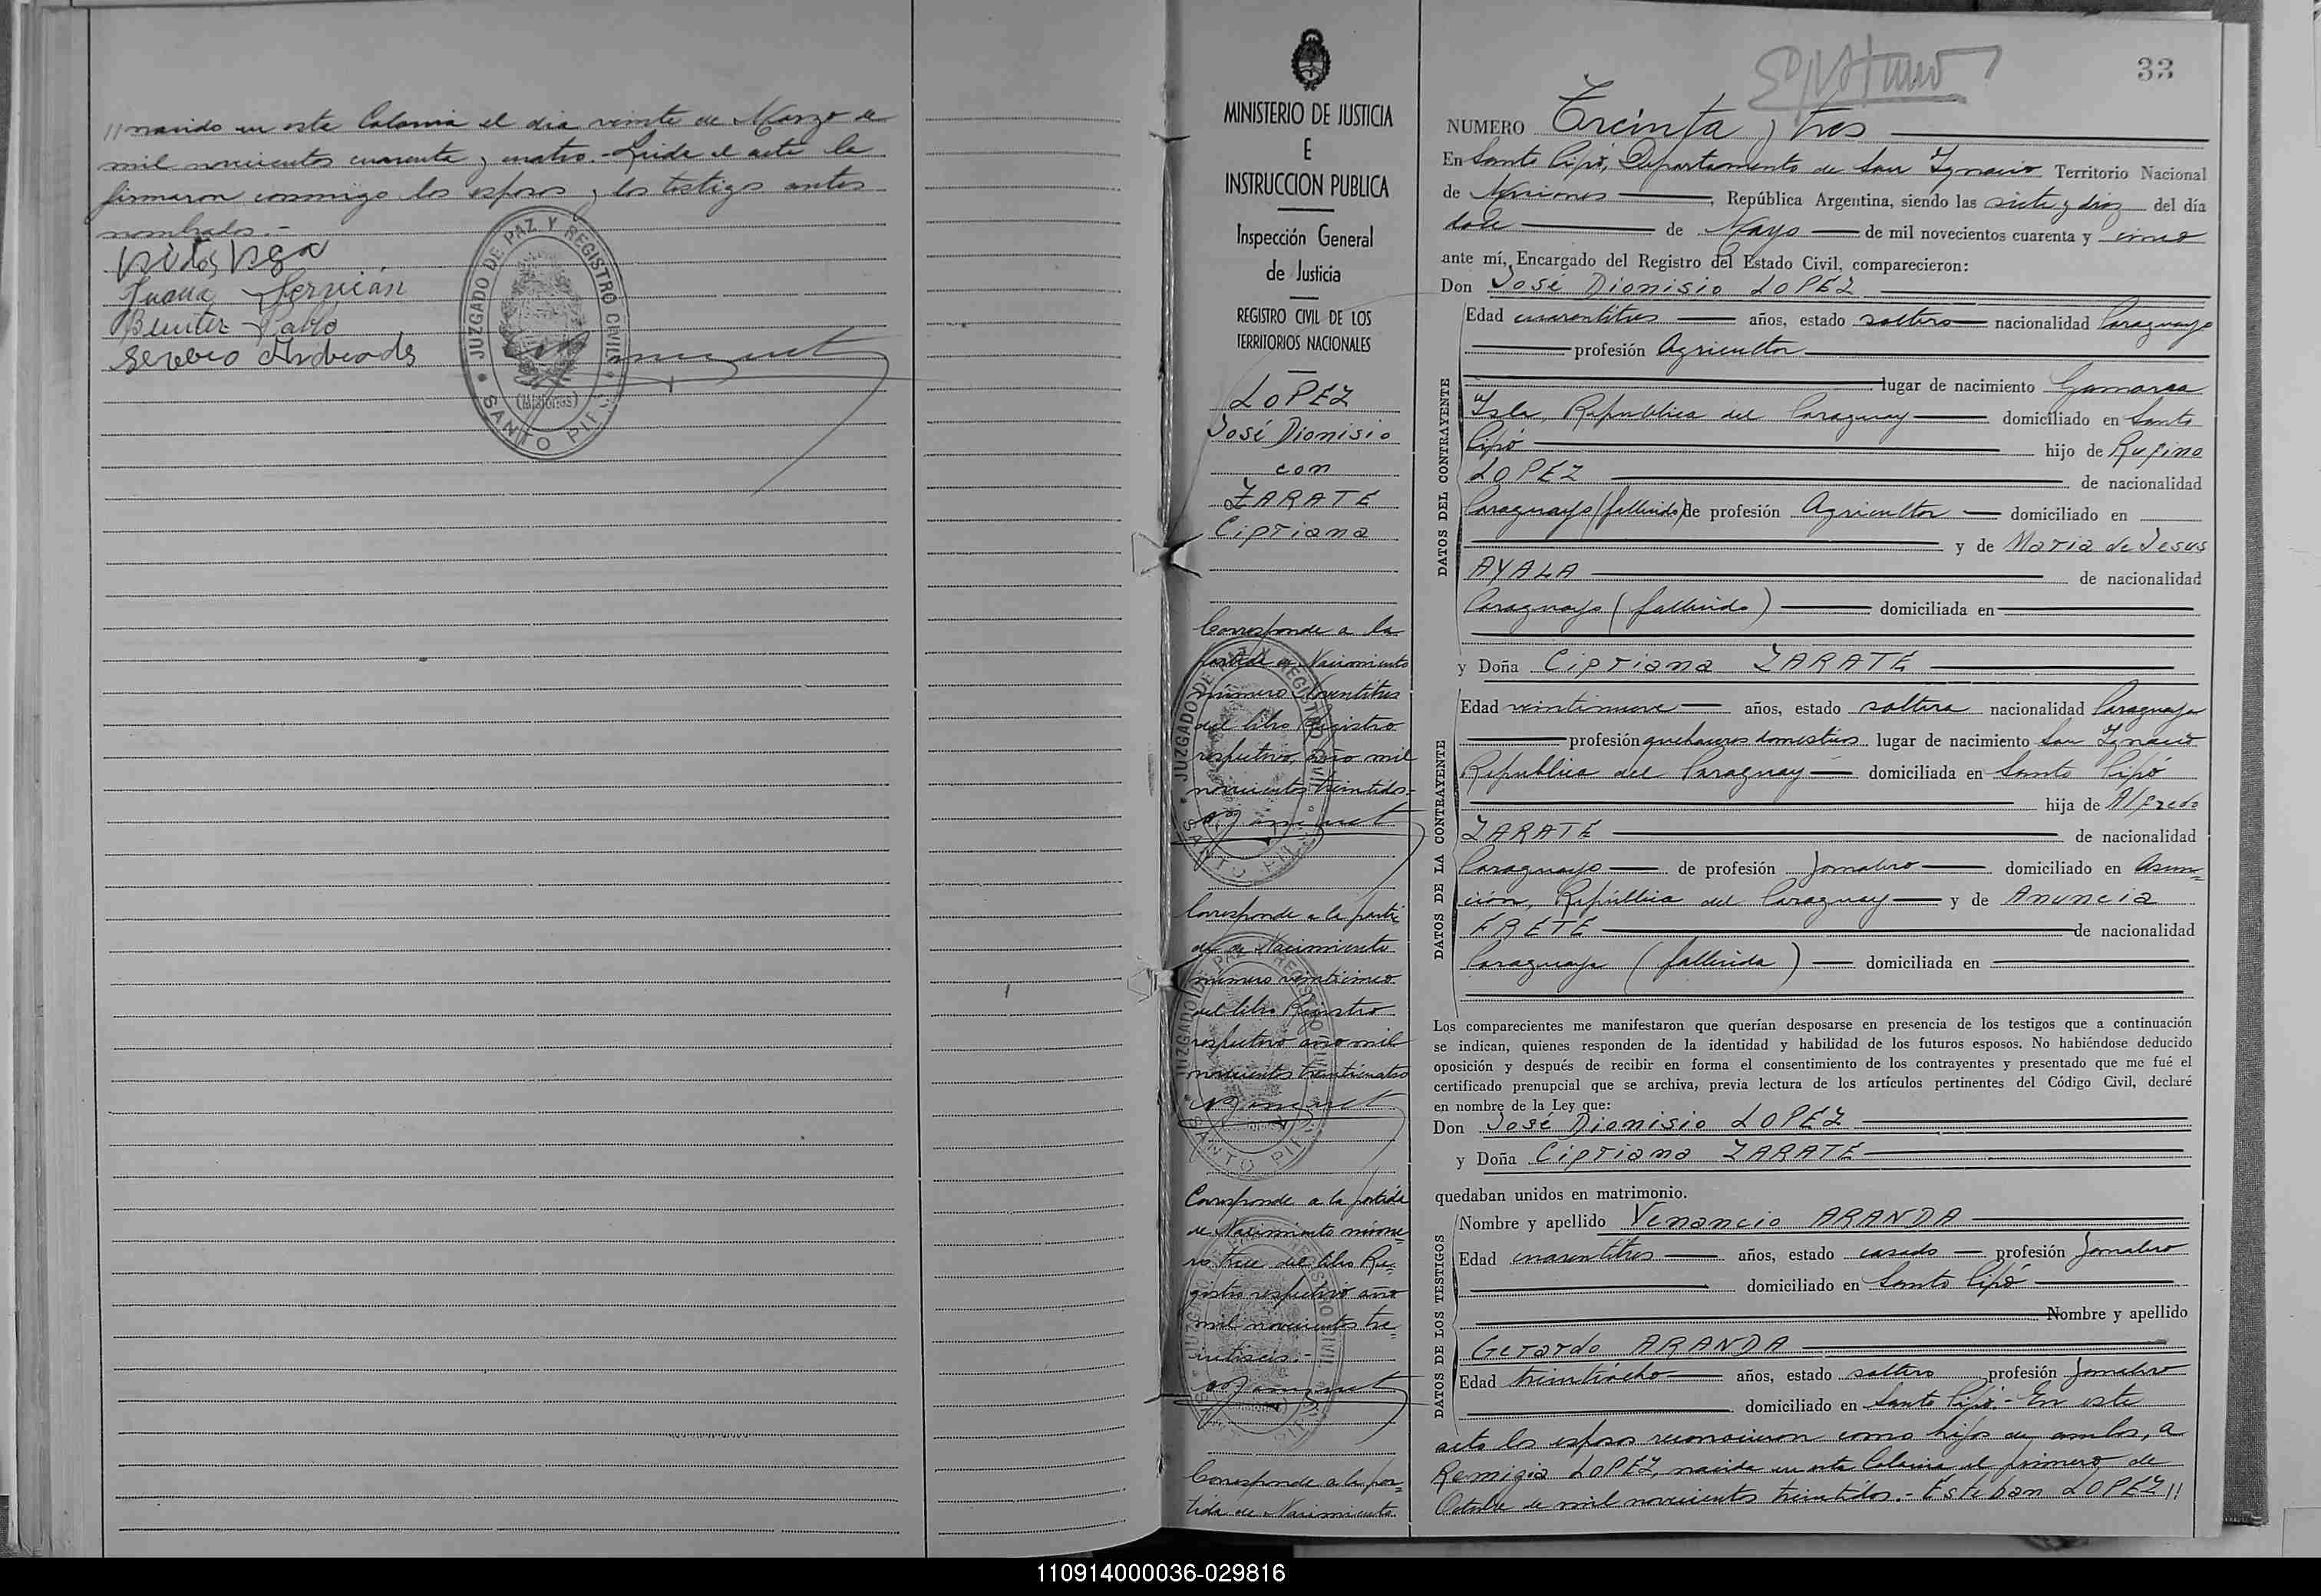 //nacido en esta Colonia el dia veinte de Marzo de
mil novecientos cuarenta y cuatro.- Leida el acta la
firmaron conmigo los esposos y los testigos antes
nombrados.-
Juana
Benitez Pablo
Severo Andrade
JUZGADO DE PAZ Y REGISTRO CIVIL
(Misiones)
SANTO PIPO
MINISTERIO DE JUSTICIA
E
INSTRUCCION PUBLICA
Inspección General
de Justicia
REGISTRO CIVIL DE LOS
TERRITORIOS NACIONALES
LOPEZ
José Dionisio
con
ZARATE
Cipriana
Corresponde a la
partida de Nacimiento
número
del libro Registro
respectivo, año mil
novecientos treintidos.-
Corresponde a la parti
da de Nacimiento
número veinticinco
del libro Registro
respectivo año mil
novecientos treinticuatro
Corresponde a la partida
de Nacimiento núme=
ro trece del libro Re=
gistro respectivo año
mil novecientos tre=
intiseis.-
Corresponde a la par=
tida de Nacimiento
33
NUMERO Treinta y tres
En Santo Pipó, Departamento de San Ignacio Territorio Nacional
de Misiones, República Argentina, siendo las siete y diez del día
doce de Mayo de mil novecientos cuarenta y cinco
ante mí, Encargado del Registro del Estado Civil, comparecieron:
Don José Dionisio LOPEZ
DATOS DEL CONTRAYENTE
Edad cuarentitres años, estado soltero nacionalidad Paraguayo
profesión Agricultor
lugar de nacimiento Gamarra
Isla, República del Paraguay domiciliado en Santo
Pipó hijo de Rufino
LOPEZ de nacionalidad
Paraguayo (fallecido) de profesión Agricultor domiciliado en
y de Maria de Jesus
AYALA de nacionalidad
Paraguaya (fallecida) domiciliada en
y Doña Cipriana ZARATE
DATOS DE LA CONTRAYENTE
Edad veintinueve años, estado soltera nacionalidad Paraguaya
profesión quehaceres domesticos lugar de nacimiento San Ignacio
República del Paraguay domiciliada en Santo Pipó
hija de Alfredo
ZARATE de nacionalidad
Paraguayo de profesión Jornalero domiciliado en Asun=
ción, República del Paraguay y de Anuncia
ERETE de nacionalidad
Paraguaya (fallecida) domiciliada en
Los comparecientes me manifestaron que querían desposarse en presencia de los testigos que a continuación
se indican, quienes responden de la identidad y habilidad de los futuros esposos. No habiéndose deducido
oposición y después de recibir en forma el consentimiento de los contrayentes y presentado que me fué el
certificado prenupcial que se archiva, previa lectura de los artículos pertinentes del Código Civil, declaré
en nombre de la Ley que:
Don José Dionisio LOPEZ
y Doña Cipriana ZARATE
quedaban unidos en matrimonio.
DATOS DE LOS TESTIGOS
Nombre y apellido Venancio ARANDA
Edad cuarentitres años, estado casado profesión Jornalero
domiciliado en Santo Pipó
Nombre y apellido
Gerardo ARANDA
Edad treintiocho años, estado soltero profesión Jornalero
domiciliado en Santo Pipó.- En este
acto los esposos reconocieron como hijos de ambos, a
Remigia LOPEZ, nacida en esta Colonia el primero de
Octubre de mil novecientos treintidos.- Esteban LOPEZ//
110914000036-029816